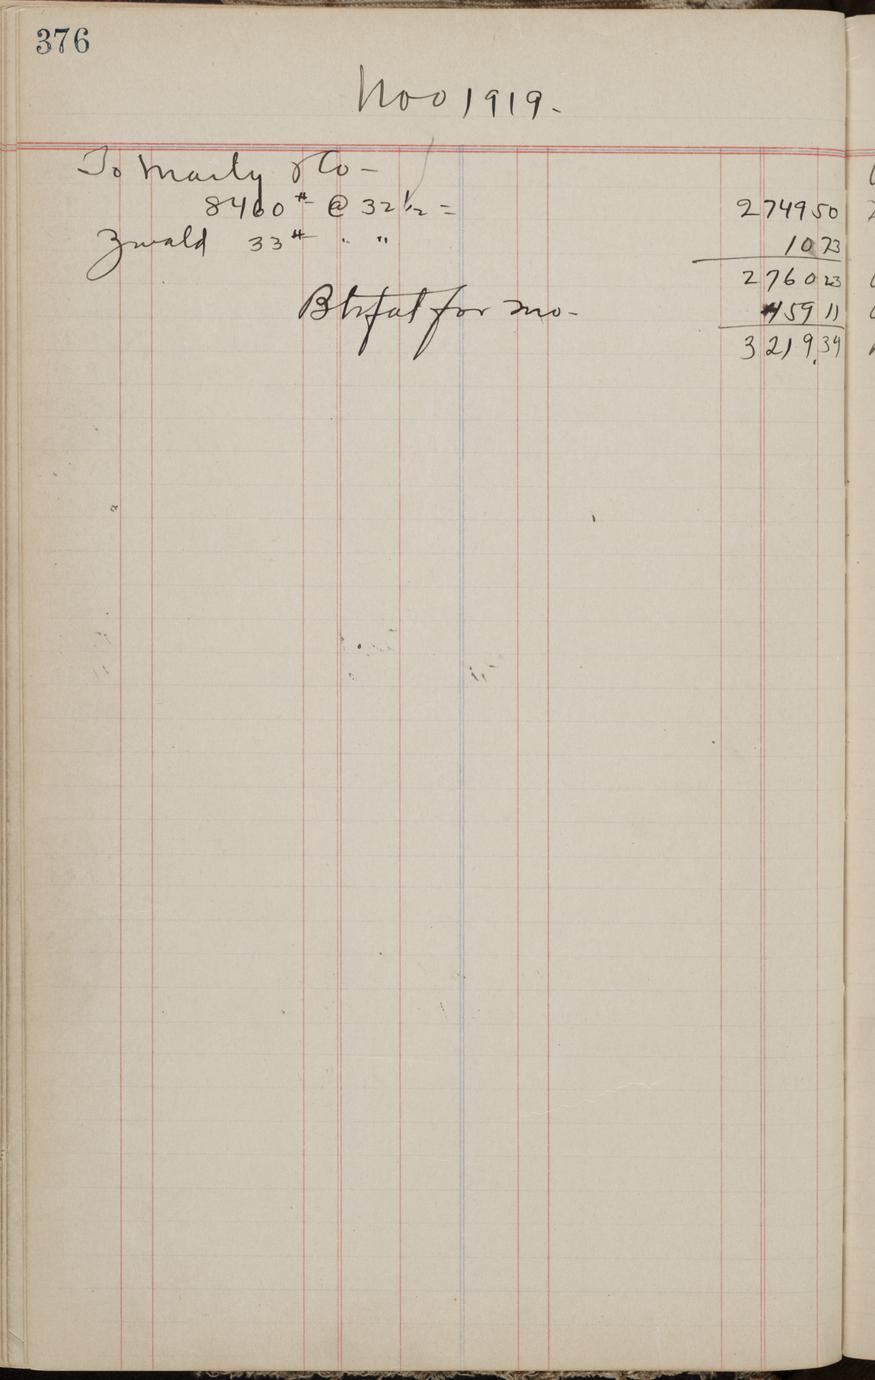 376
Nov 1919.
To Marty & Co -
8460 # @ 32 1/2 = 2749 50
Zwald 33 # " " 10 73
2760 23
Btrfat for mo - 459 11
3219.34